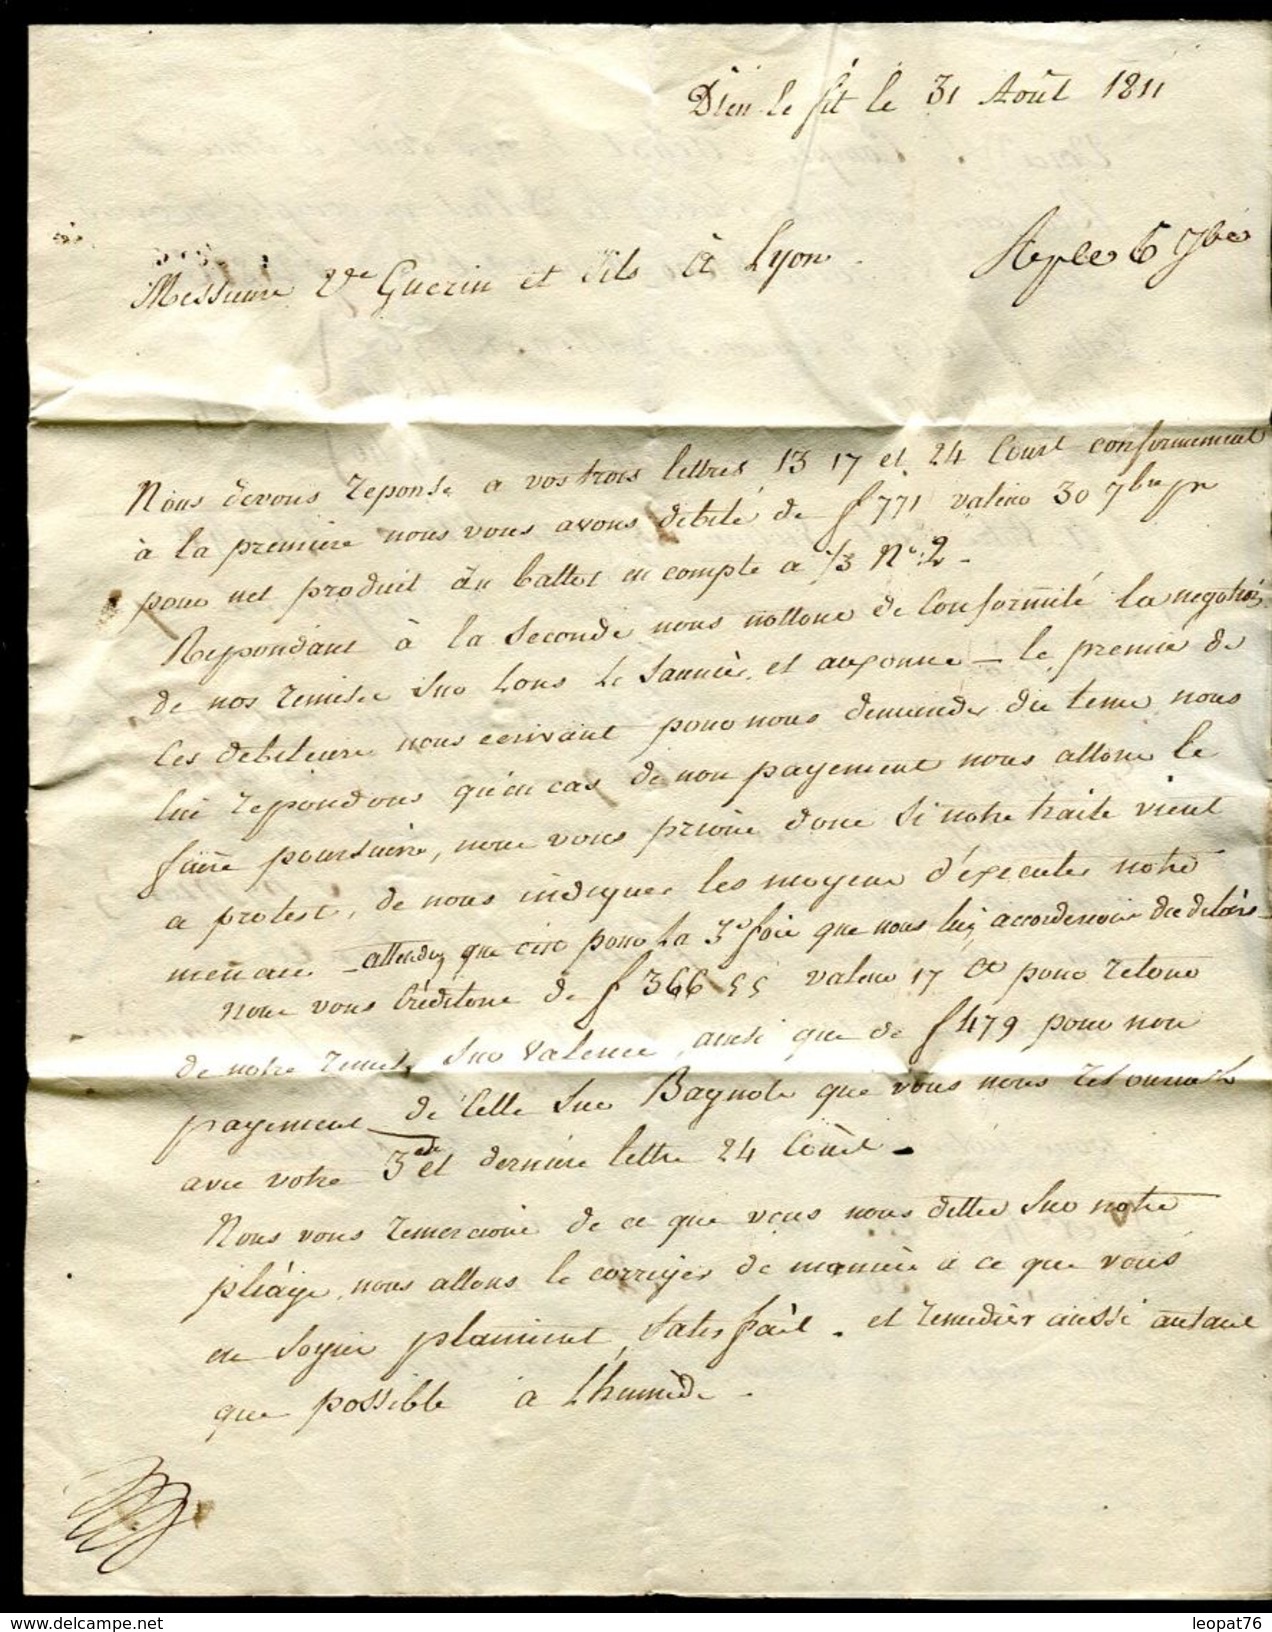 Dieu le fit le 31 Août 1811
Messieurs Ve Guerin et fils à Lyon. 6 7bre
Nous devons reponse a vos trois lettres 13 17 et 24 Court conformement
à la premiere nous vous avons debité de f 771 valeur 30 7bre pr
pour net produit du ballot en compte a 1/3 N° 2 -
Repondant à la seconde nous nottons de conformité la negotion
de nos remises sur Lons le Saunier et auxonne - le premier de
ces debiteurs nous ecrivant pour nous demander du tems nous
lui repondons qu'en cas de non payement nous allons le
faire poursuivre, nous vous prions donc si notre traite vient
a protest, de nous indiquer les moyens d'éxecuter notre
menace - attendu que c'est pour la 3e fois que nous lui accorderions des delais -
Nous vous Créditons de f 366 55 valeur 17 Ct pour retour
de notre remise sur Valence, ainsi que de f 479 pour non
payement de Celle sur Bagnols que vous nous retournés
avec votre 3e et derniere lettre 24 Court. -
Nous vous remercions de ce que vous nous dittes sur notre
pliage, nous allons le corriger de maniere a ce que vous
en soyiez plainement satisfait. et remedier aussi autant
que possible à l'humide -
leopat76